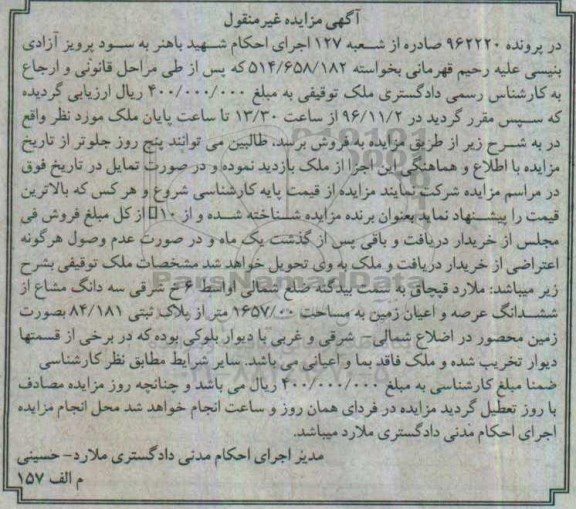 آگهی مزایده غیرمنقول
در پرونده ۹۶۲۲۲۰ صادره از شعبه ۱۲۷ اجرای احکام شهید باهنر به سود پرویز آزادی
بنیسی علیه رحیم قهرمانی بخواسته ۵۱۴/۶۵۸/۱۸۲ که پس از طی مراحل قانونی و ارجاع
به کارشناس رسمی دادگستری ملک توقیفی به مبلغ ۴۰۰/۰۰۰/۰۰۰ ریال ارزیابی گردیده
که سپس مقرر گردید در ۹۶/۱۱/۲ از ساعت ۱۳/۳۰ تا ساعت پایان ملک موزد نظر واقع
در به شرح زیر از طریق مزایده به فروش برسد. طالبین می توانند پنج روز جلوتر از تاریخ
مزایده با اطلاع و هماهنگی این اجرا از ملک بازدید نموده و در صورت تمایل در تاریخ فوق
در مراسم مزایده شرکت نمایند مزایده از قیمت پایه کارشناسی شروع و هر کس که بالاترین
قیمت را پیشنهاد نماید بعنوان برنده مزایده شناخته شده و از ۱۰□ از کل مبلغ فروش فی
مجلس از خریدار دریافت و باقی پس از گذشت یک ماه و در صورت عدم وصول هرگونه
اعتراضی از خریدار دریافت و ملک به وی تحویل خواهد شد مشخصات ملک توقیفی بشرح
زیر میباشد: ملارد قپچاق به سمت بیدگنه ضلع شمالی اواسط ۶ خ شرقی سه دانگ مشاع از
ششدانگ عرصه و اعیان زمین به مساحت ۱۶۵۷/۰۰ متر از پلاک ثبتی ۸۴/۱۸۱ بصورت
زمین محصور در اضلاع شمالی – شرقی و غربی با دیوار بلوکی بوده که در برخی از قسمتها
دیوار تخریب شده و ملک فاقد بما و اعیانی می باشد. سایر شرایط مطابق نظر کارشناسی
ضمنا مبلغ کارشناسی به مبلغ ۴۰۰/۰۰۰/۰۰۰ ریال می باشد و چنانچه روز مزایده مصادف
با روز تعطیل گردید مزایده در فردای همان روز و ساعت انجام خواهد شد محل انجام مزایده
اجرای احکام مدنی دادگستری ملارد میباشد.
مدیر اجرای احکام مدنی دادگستری ملارد- حسینی
م الف ۱۵۷
ParsNamadData